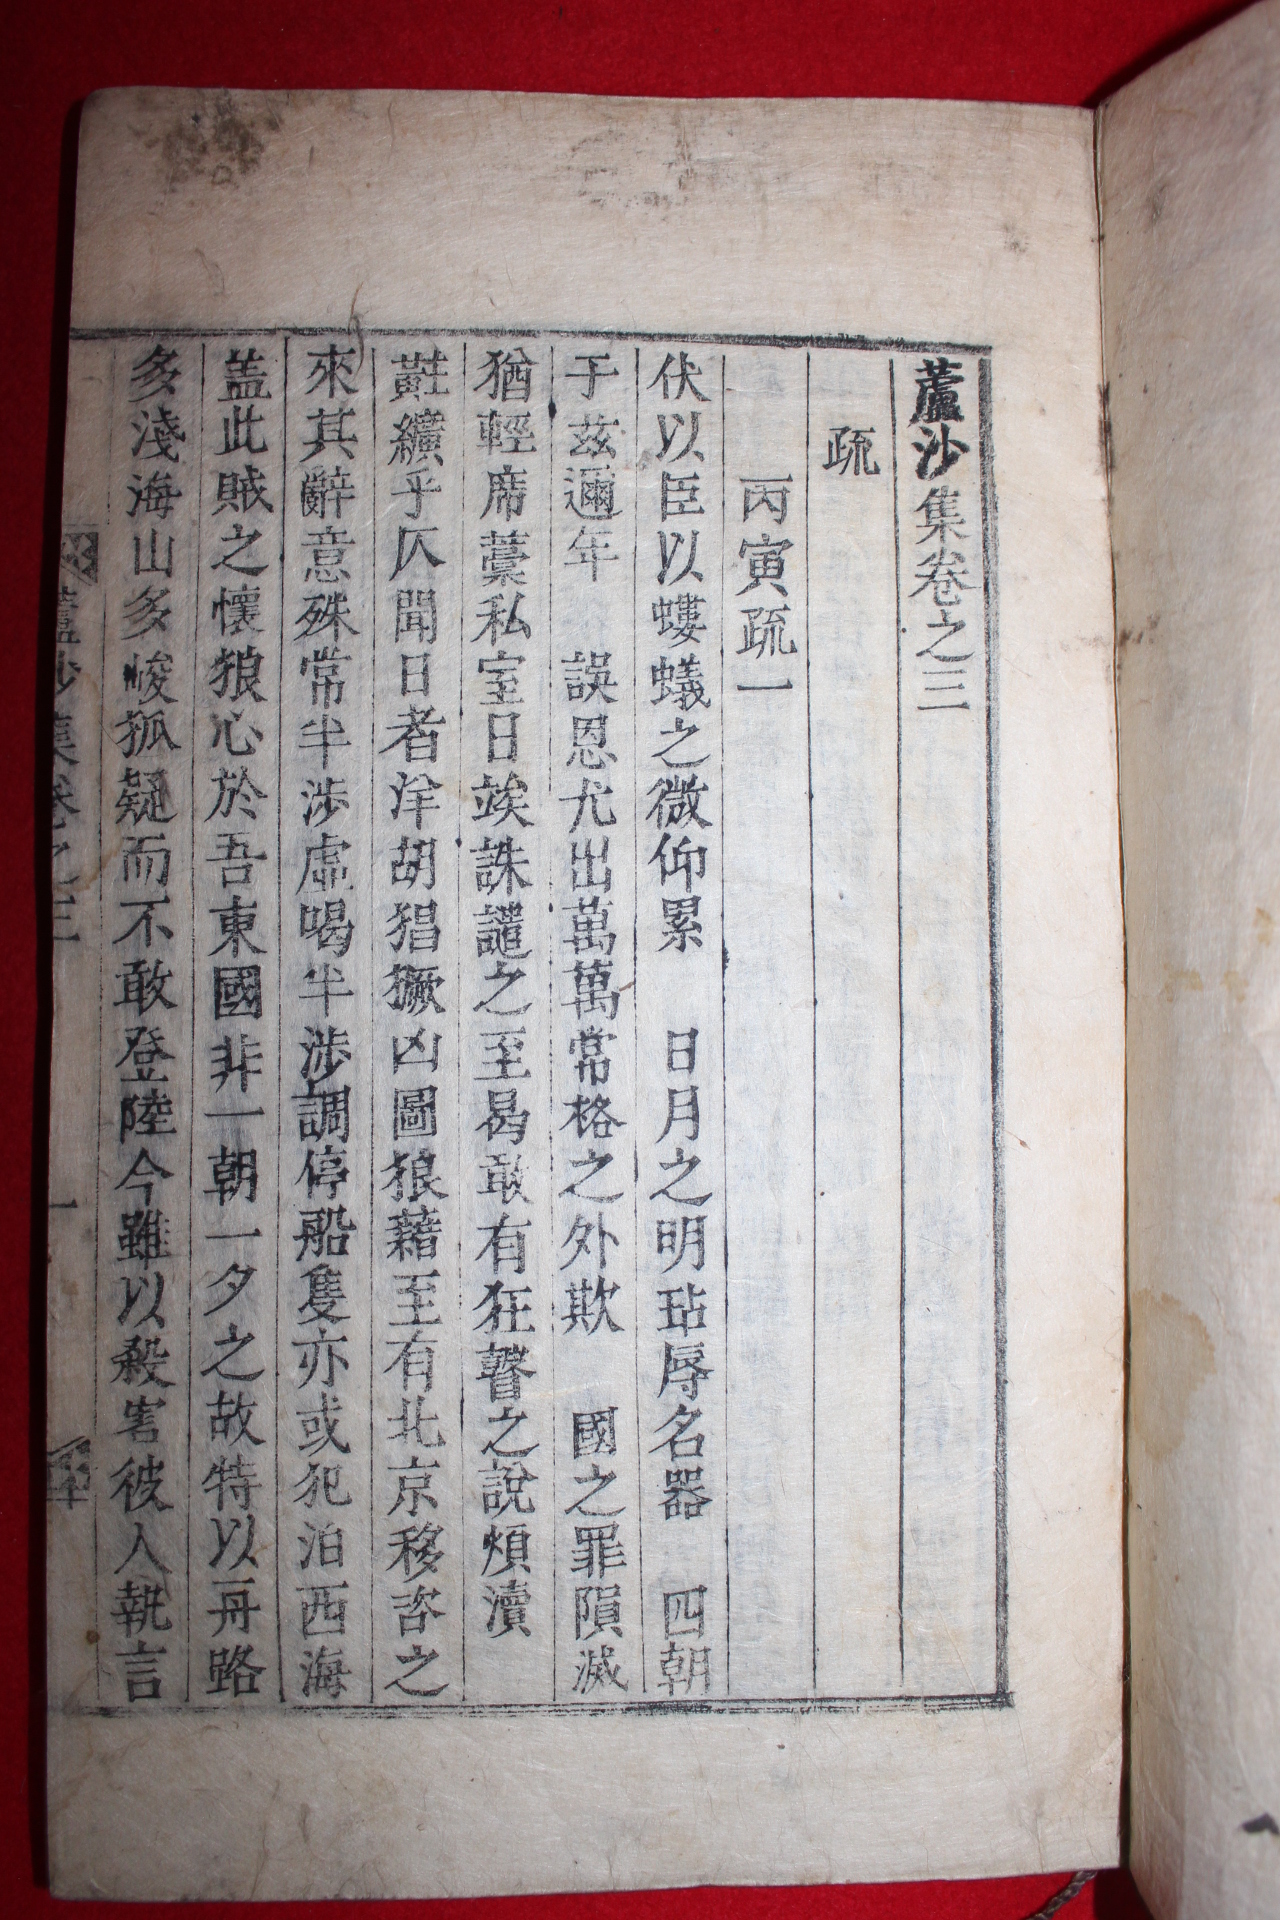 蘆沙集卷之三
疏
丙寅疏一
伏以臣以螻蟻之微仰累 日月之明玷辱名器 四朝
于茲邇年 誤恩尤出萬萬常格之外欺 國之罪隕滅
猶輕席藁私室日竢誅譴之至曷敢有狂瞽之說煩瀆
黈纊乎仄聞日者洋胡猖獗凶圖狼藉至有北京移咨之
來其辭意殊常半涉虛喝半涉調停船隻亦或犯泊西海
盖此賊之懷狼心於吾東國非一朝一夕之故特以舟路
多淺海山多峻狐疑而不敢登陸今雖以殺害彼人執言
蘆沙集卷之三
一